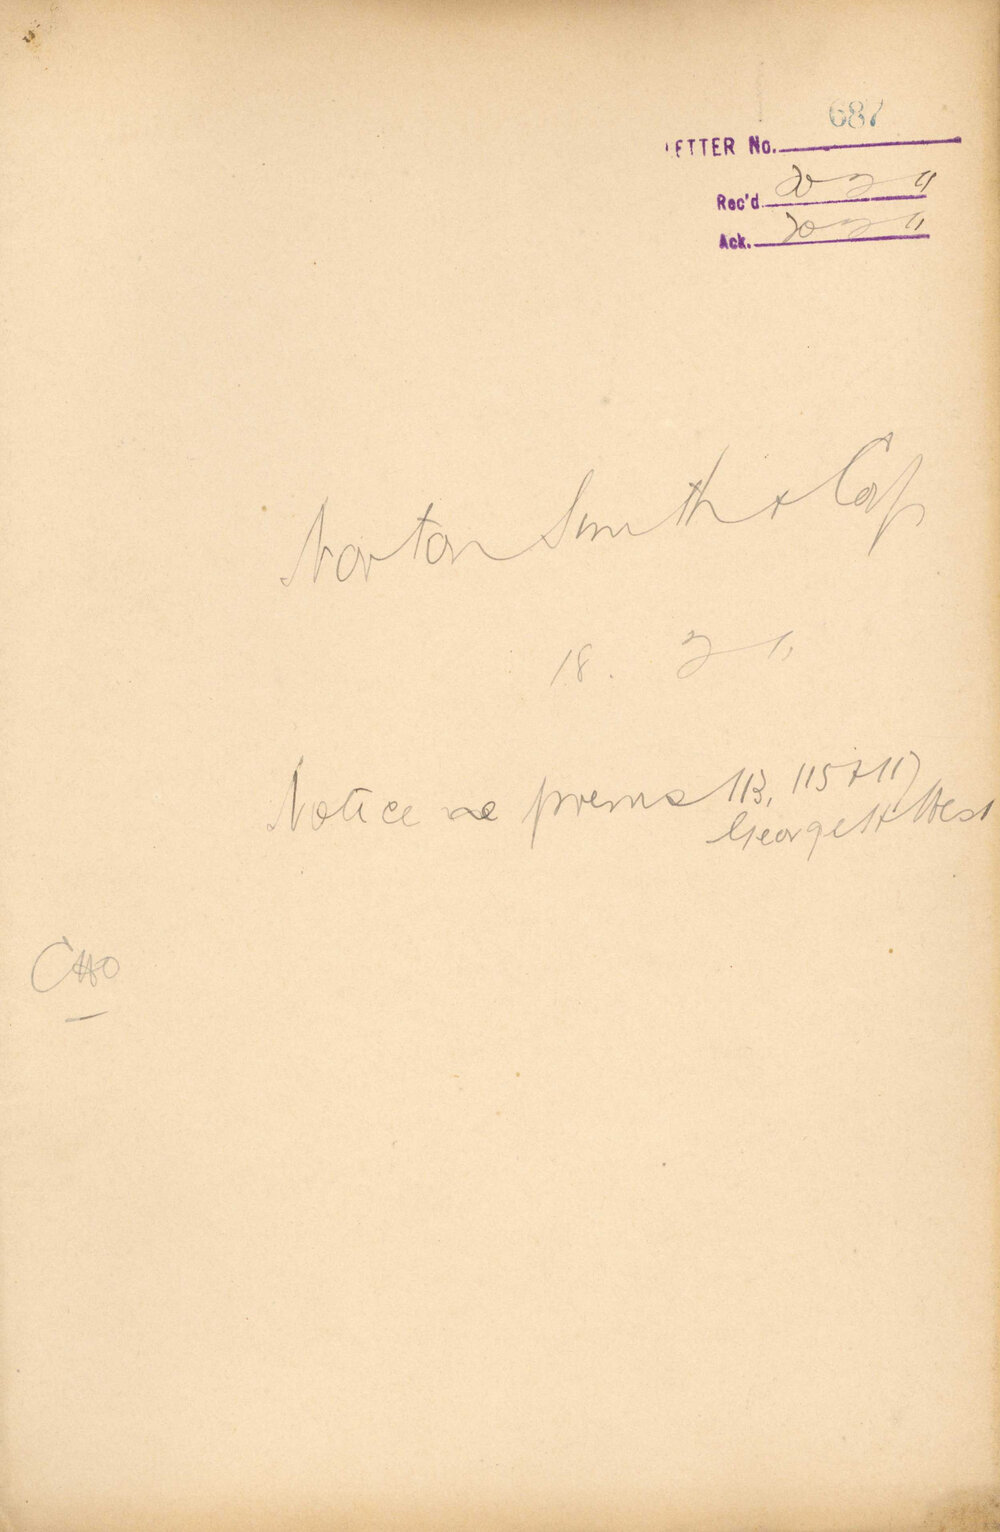 687
LETTER No.
Rec'd 20 2 11
Ack. 20 2 11
Norton Smith & Co
18. 2 11
Notice re prems 113, 115 & 117
George St West
CHO